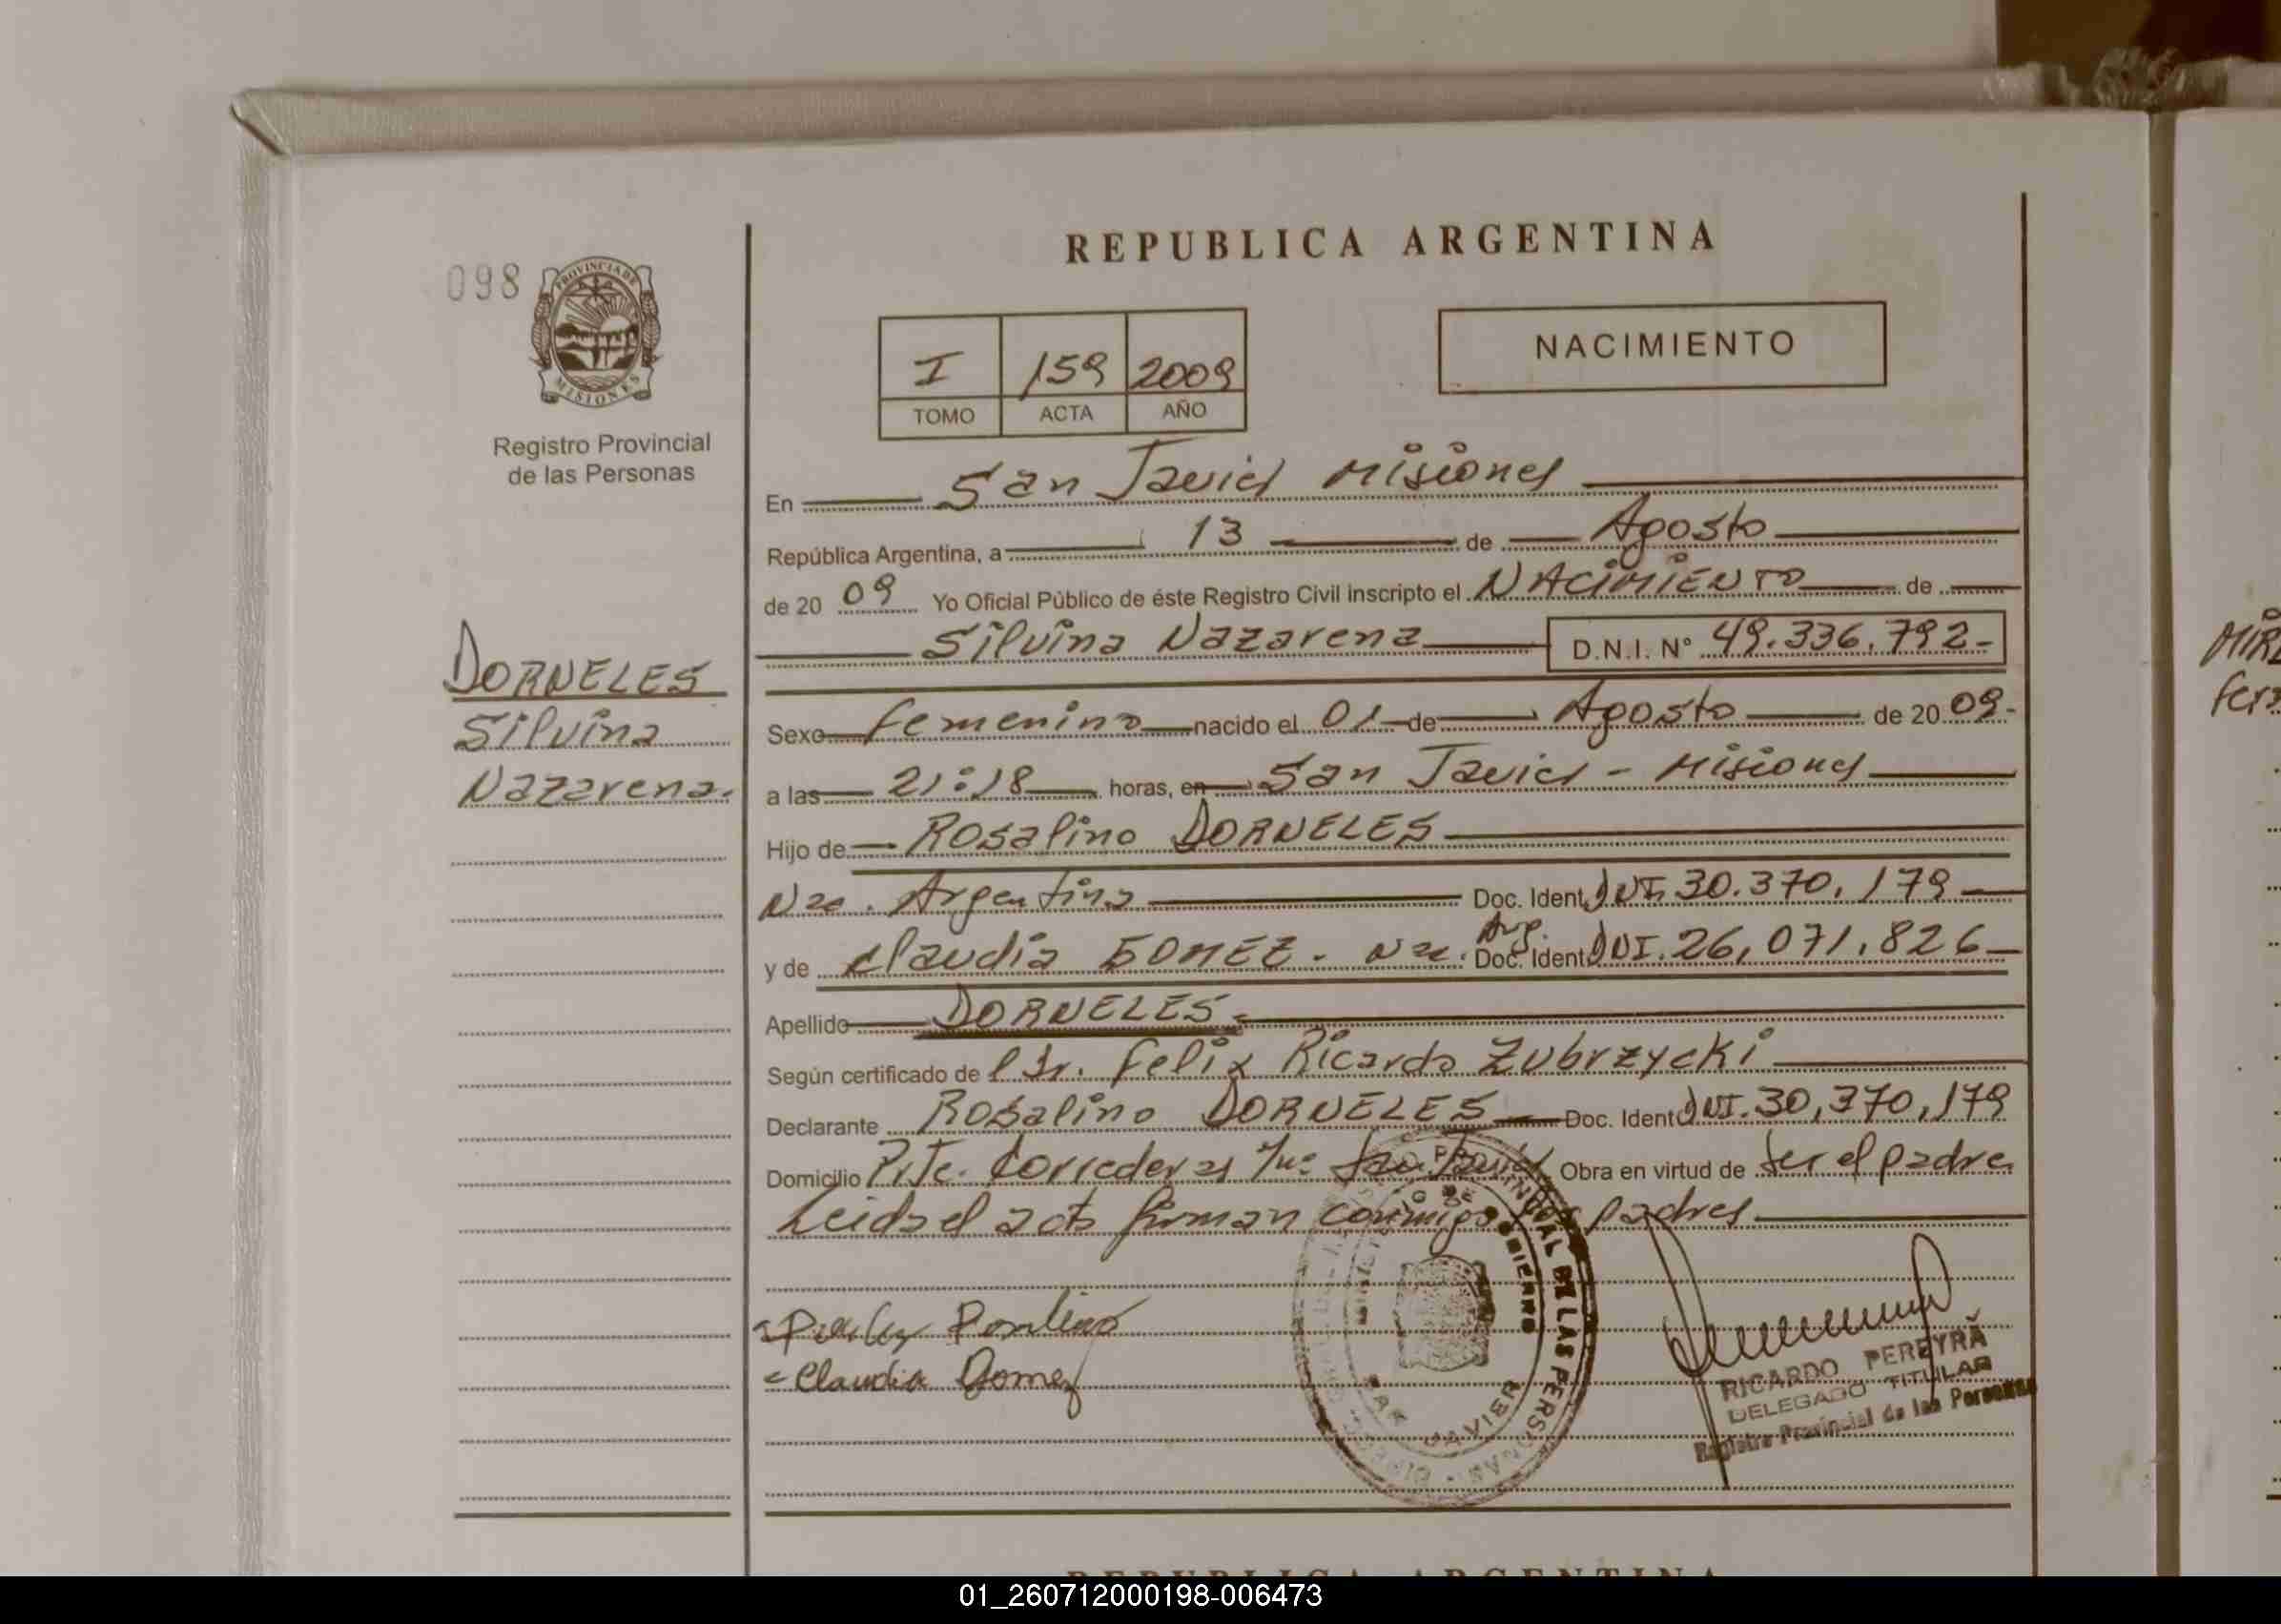 REPUBLICA ARGENTINA
098
PROVINCIA DE
MISIONES
Registro Provincial
de las Personas
I 159 2009
TOMO ACTA AÑO
NACIMIENTO
En San Javier Misiones
República Argentina, a 13 de Agosto
de 20 09 Yo Oficial Público de éste Registro Civil inscripto el NACIMIENTO de
Silvina Nazarena D.N.I. N° 49.336.792-
DORNELES
Silvina
Nazarena.
Sexo femenino nacido el 01 de Agosto de 20 09-
a las 21:18 horas, en San Javier - Misiones
Hijo de Rosalino DORNELES
Nac. Argentina Doc. Ident DNI. 30.370.179
y de Claudia GOMEZ - Nac. Arg. Doc. Ident DNI. 26,071,826
Apellido DORNELES-
Según certificado de l Dr. Felix Ricardo Zubrzycki
Declarante Rosalino DORNELES Doc. Ident DNI. 30,370,179
Domicilio Pje. Corredera San Javier Obra en virtud de ser el padre
Leida el acta firman conmigo padres
Claudia Gomez
REGISTRO PROVINCIAL DE LAS PERSONAS
MINISTERIO DE GOBIERNO
SAN JAVIER
RICARDO PEREYRA
DELEGADO TITULAR
Registro Provincial de las Personas
REPUBLICA ARGENTINA
01_260712000198-006473